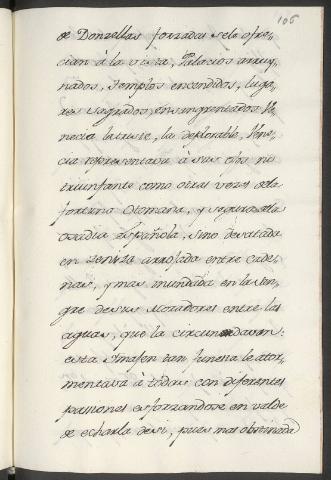 106
de Donzellas forzadas se le ofre-
cian â la vista, Palacios arruy-
nados, Templos encendidos, luga-
res sagrados, ensangrentados Ve-
necia la triste, la deplorable Vene-
cia representava â sus ojos no
triunfante como otras vezes de la
fortuna Otomana, y segura de la
Osadia Española, sino desatada
en Zeniza arrojada entre cade-
nas, y mas inundada en la San-
gre de sus Moradores entre las
aguas, que la circundavan:
esta Imajen tan funesta le ator-
mentava â todas con diferentes
passiones esforzandose en valde
de echarla de si, pues mas obstinada